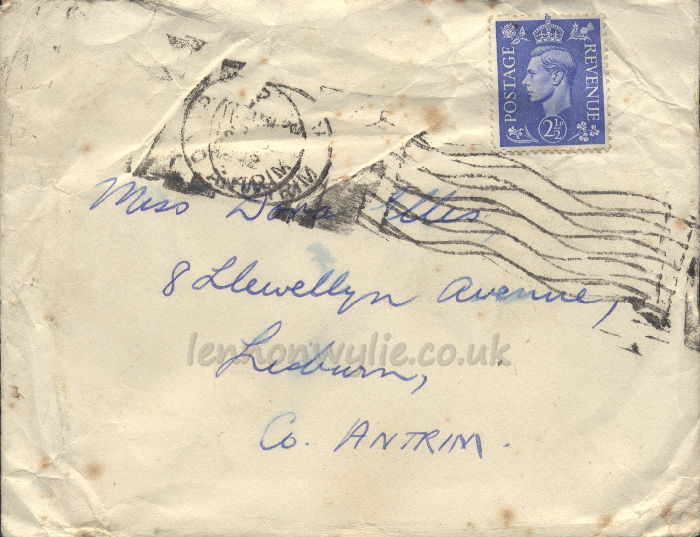 POSTAGE REVENUE
2½D
Miss Dora Ellis,
8 Llewellyn Avenue,
Lisburn,
Co. ANTRIM.
lennonwylie.co.uk